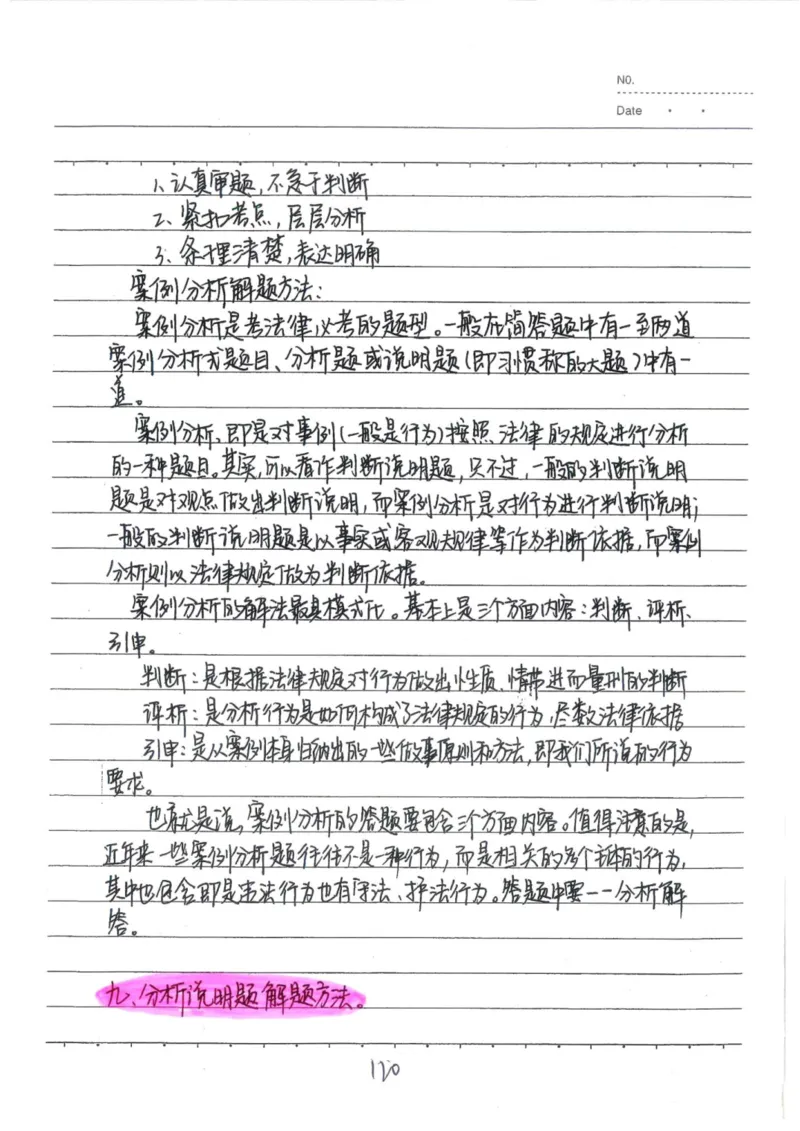 NO.
Date
1、认真审题，不急于判断
2、紧扣考点，层层分析
3、条理清楚，表达明确
案例分析解题方法：
案例分析是考法律必考的题型。一般在简答题中有一至两道
案例分析式题目、分析题或说明题（即习惯称的大题）中有一
道。
案例分析、即是对事例（一般是行为）按照法律的规定进行分析
的一种题目。其实，可以看作判断说明题，只不过，一般的判断说明
题是对观点做出判断说明，而案例分析是对行为进行判断说明；
一般的判断说明题是以事实或客观规律等作为判断依据，而案例
分析则以法律规定做为判断依据。
案例分析的解法最具模式化。基本上是三个方面内容：判断、评析、
引申。
判断：是根据法律规定对行为做出性质、情节进而量刑的判断
评析：是分析行为是如何构成了法律规定的行为，尽数法律依据
引申：是从案例本身归纳出的一些做事原则和方法，即我们所说的行为
要求。
也就是说，案例分析的答题要包含三个方面内容。值得注意的是，
近年来一些案例分析题往往不是一种行为，而是相关的多个主体的行为，
其中也包含即是违法行为也有守法、护法行为。答题中要一一分析解
答。
九、分析说明题解题方法。
120